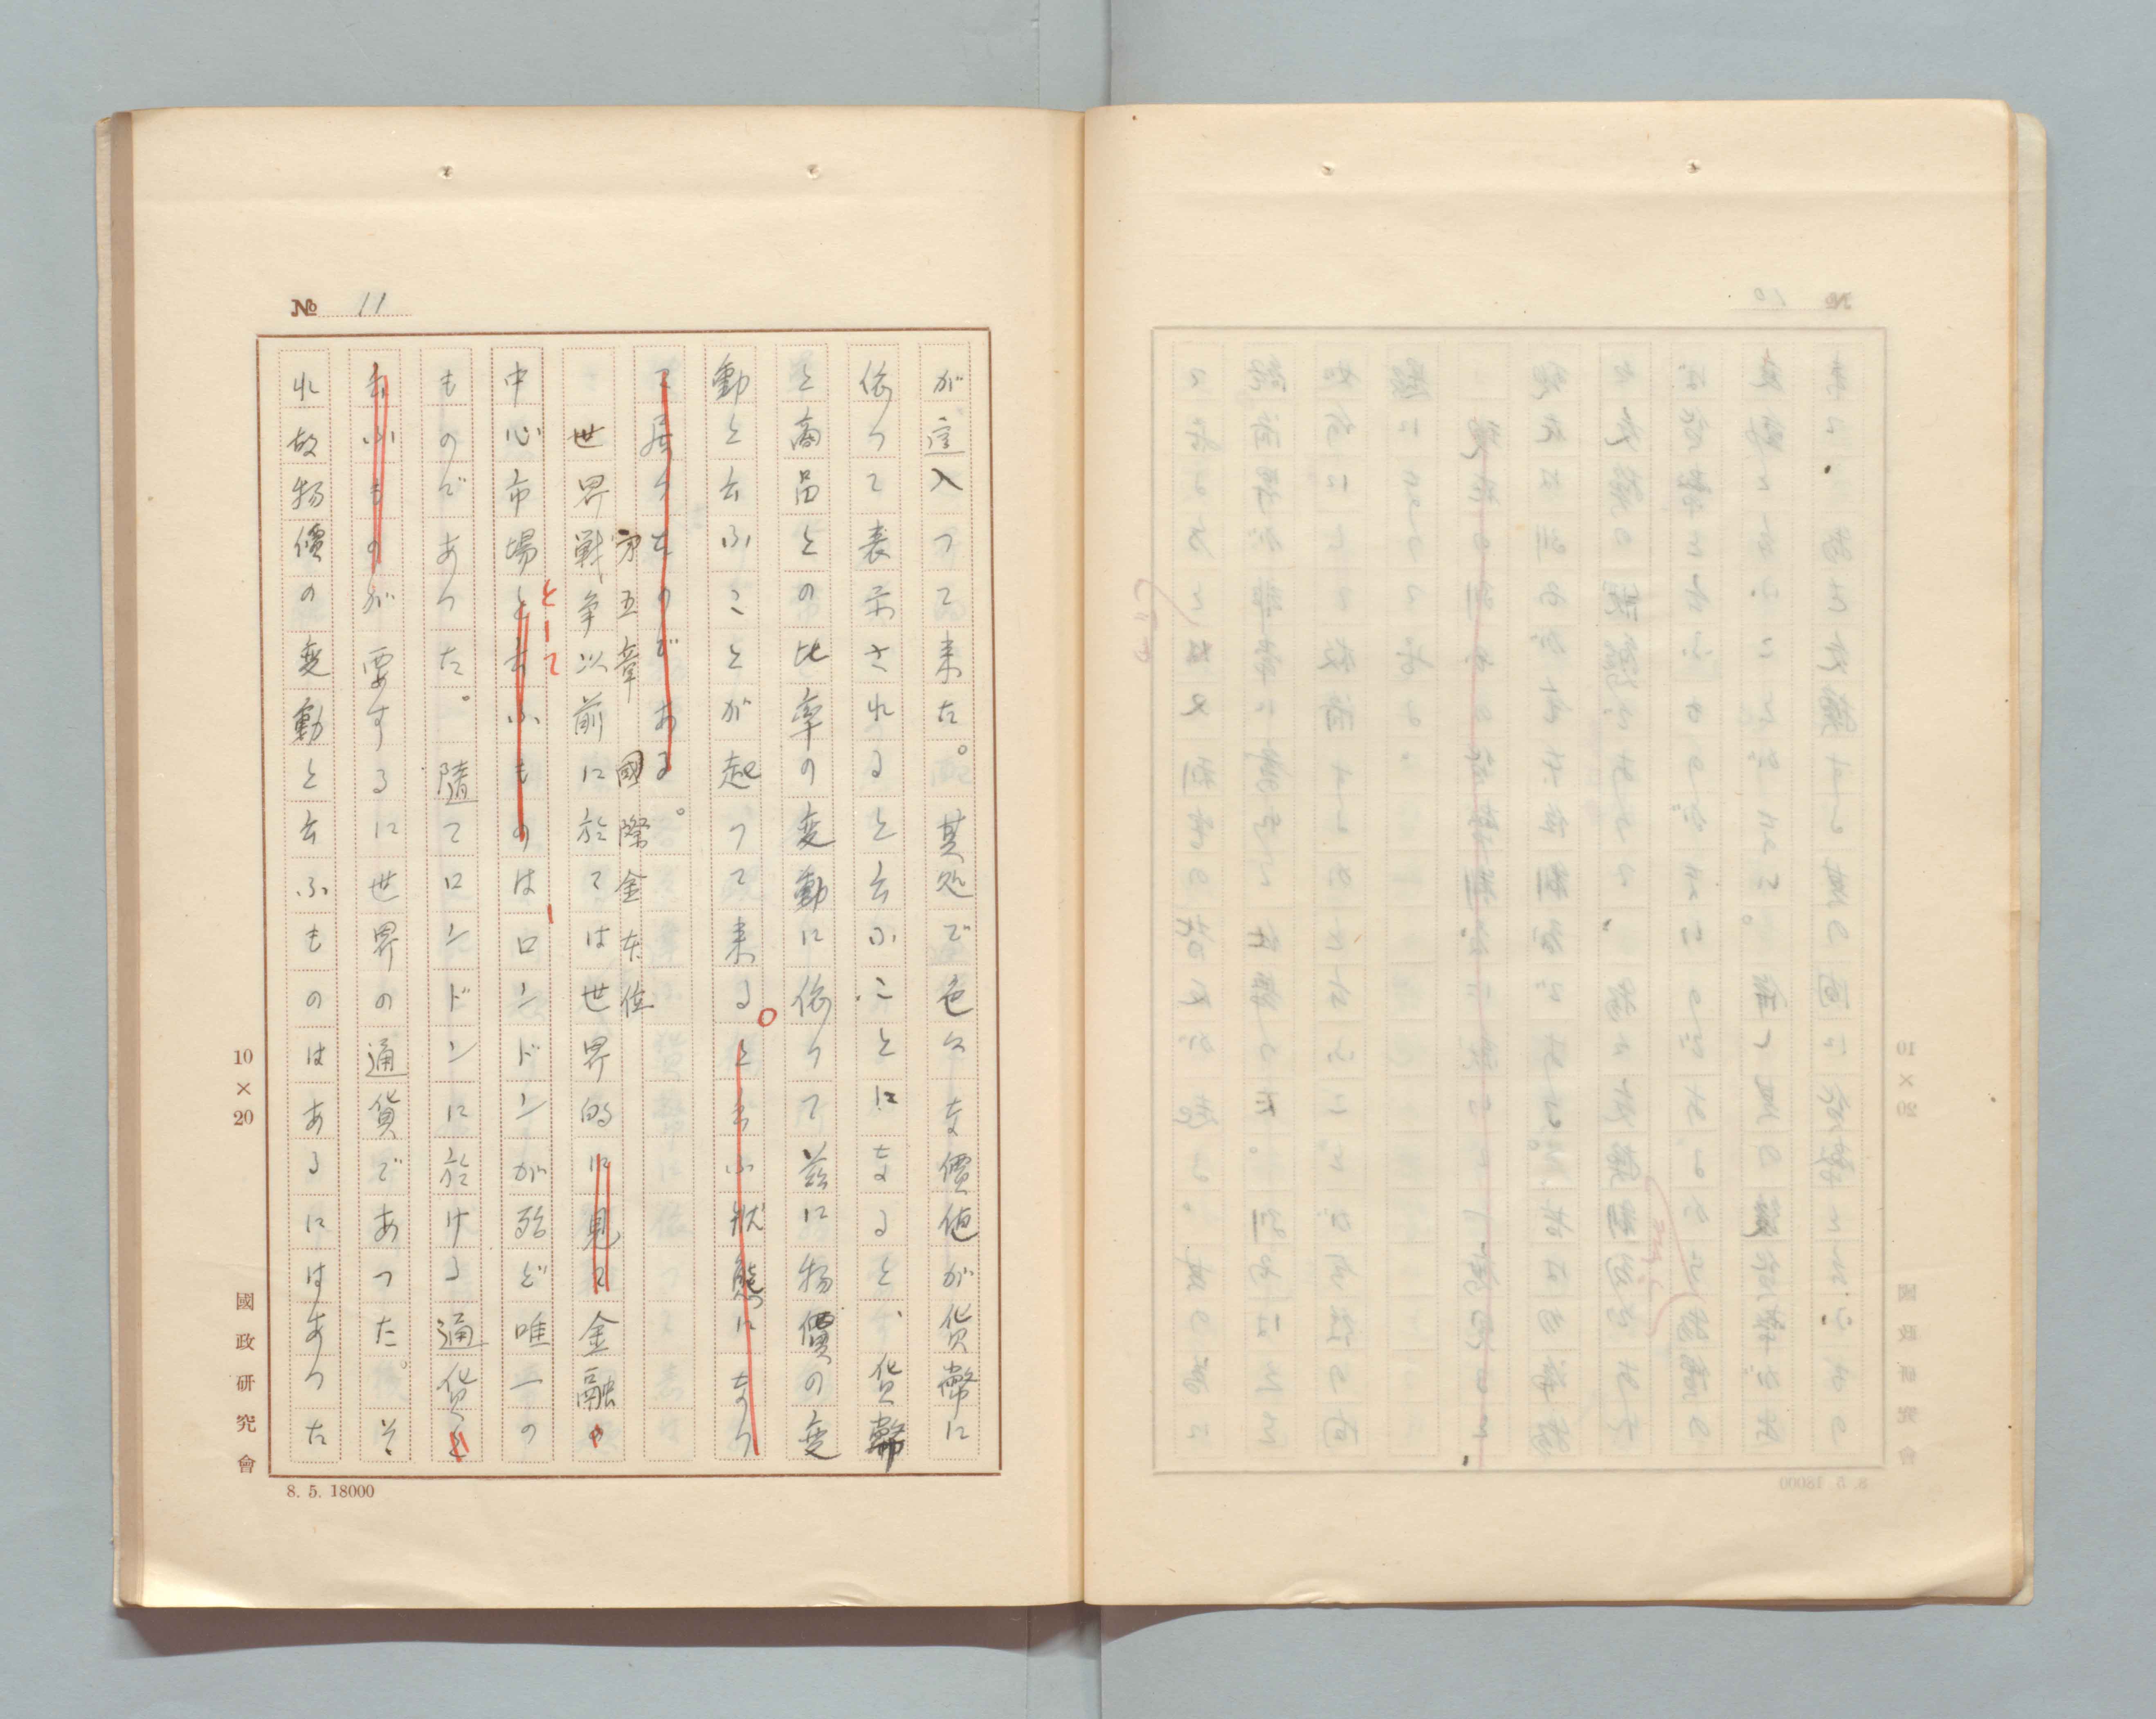 № 11
が這入つて来た。其処で色々な價値が貨幣に
依つて表示されると云ふことになると、貨幣
と商品との比率の変動に依つて茲に物價の変
動と云ふことが起つて来る。と云ふ状態になつ
て居つたのである。
第五章 國際金本位
世界戦争以前に於ては世界的に見て金融の
中心市場と云ふものはロンドンが殆ど唯一の
として
ものであつた。隨てロンドンに於ける通貨と
云ふものが要するに世界の通貨であつた。そ
れ故物價の変動と云ふものはあるにはあつた
10×20
國政研究會
8. 5. 18000